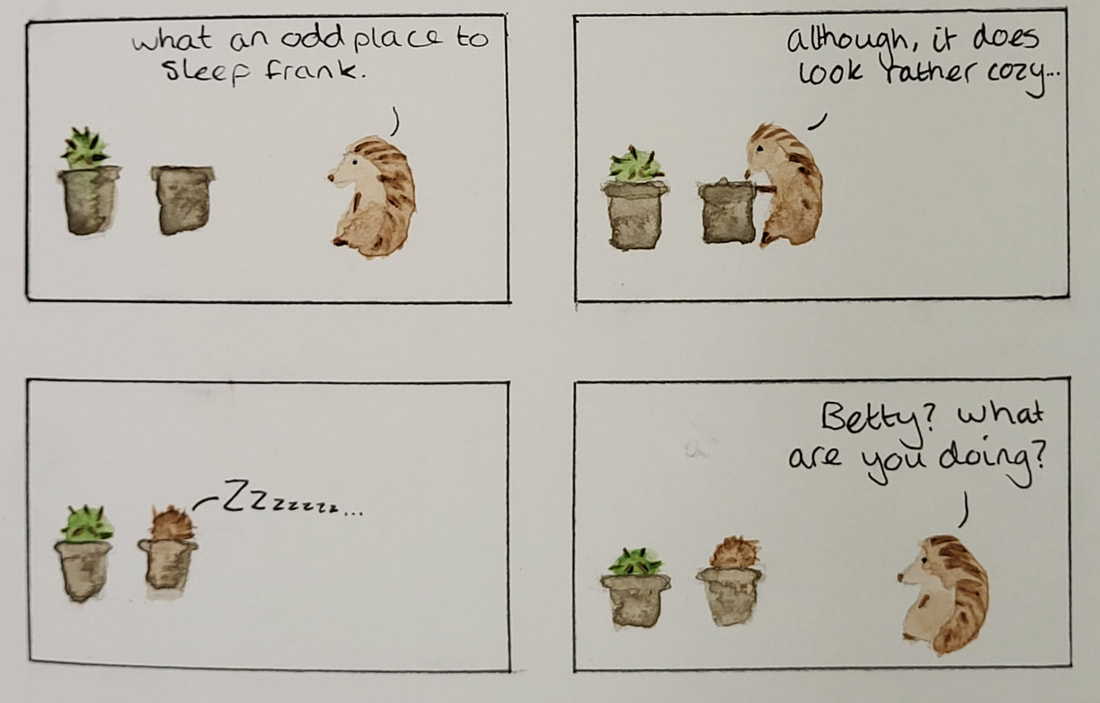 what an odd place to
sleep frank.
although, it does
look rather cozy...
Zzzzzzz...
Betty? what
are you doing?